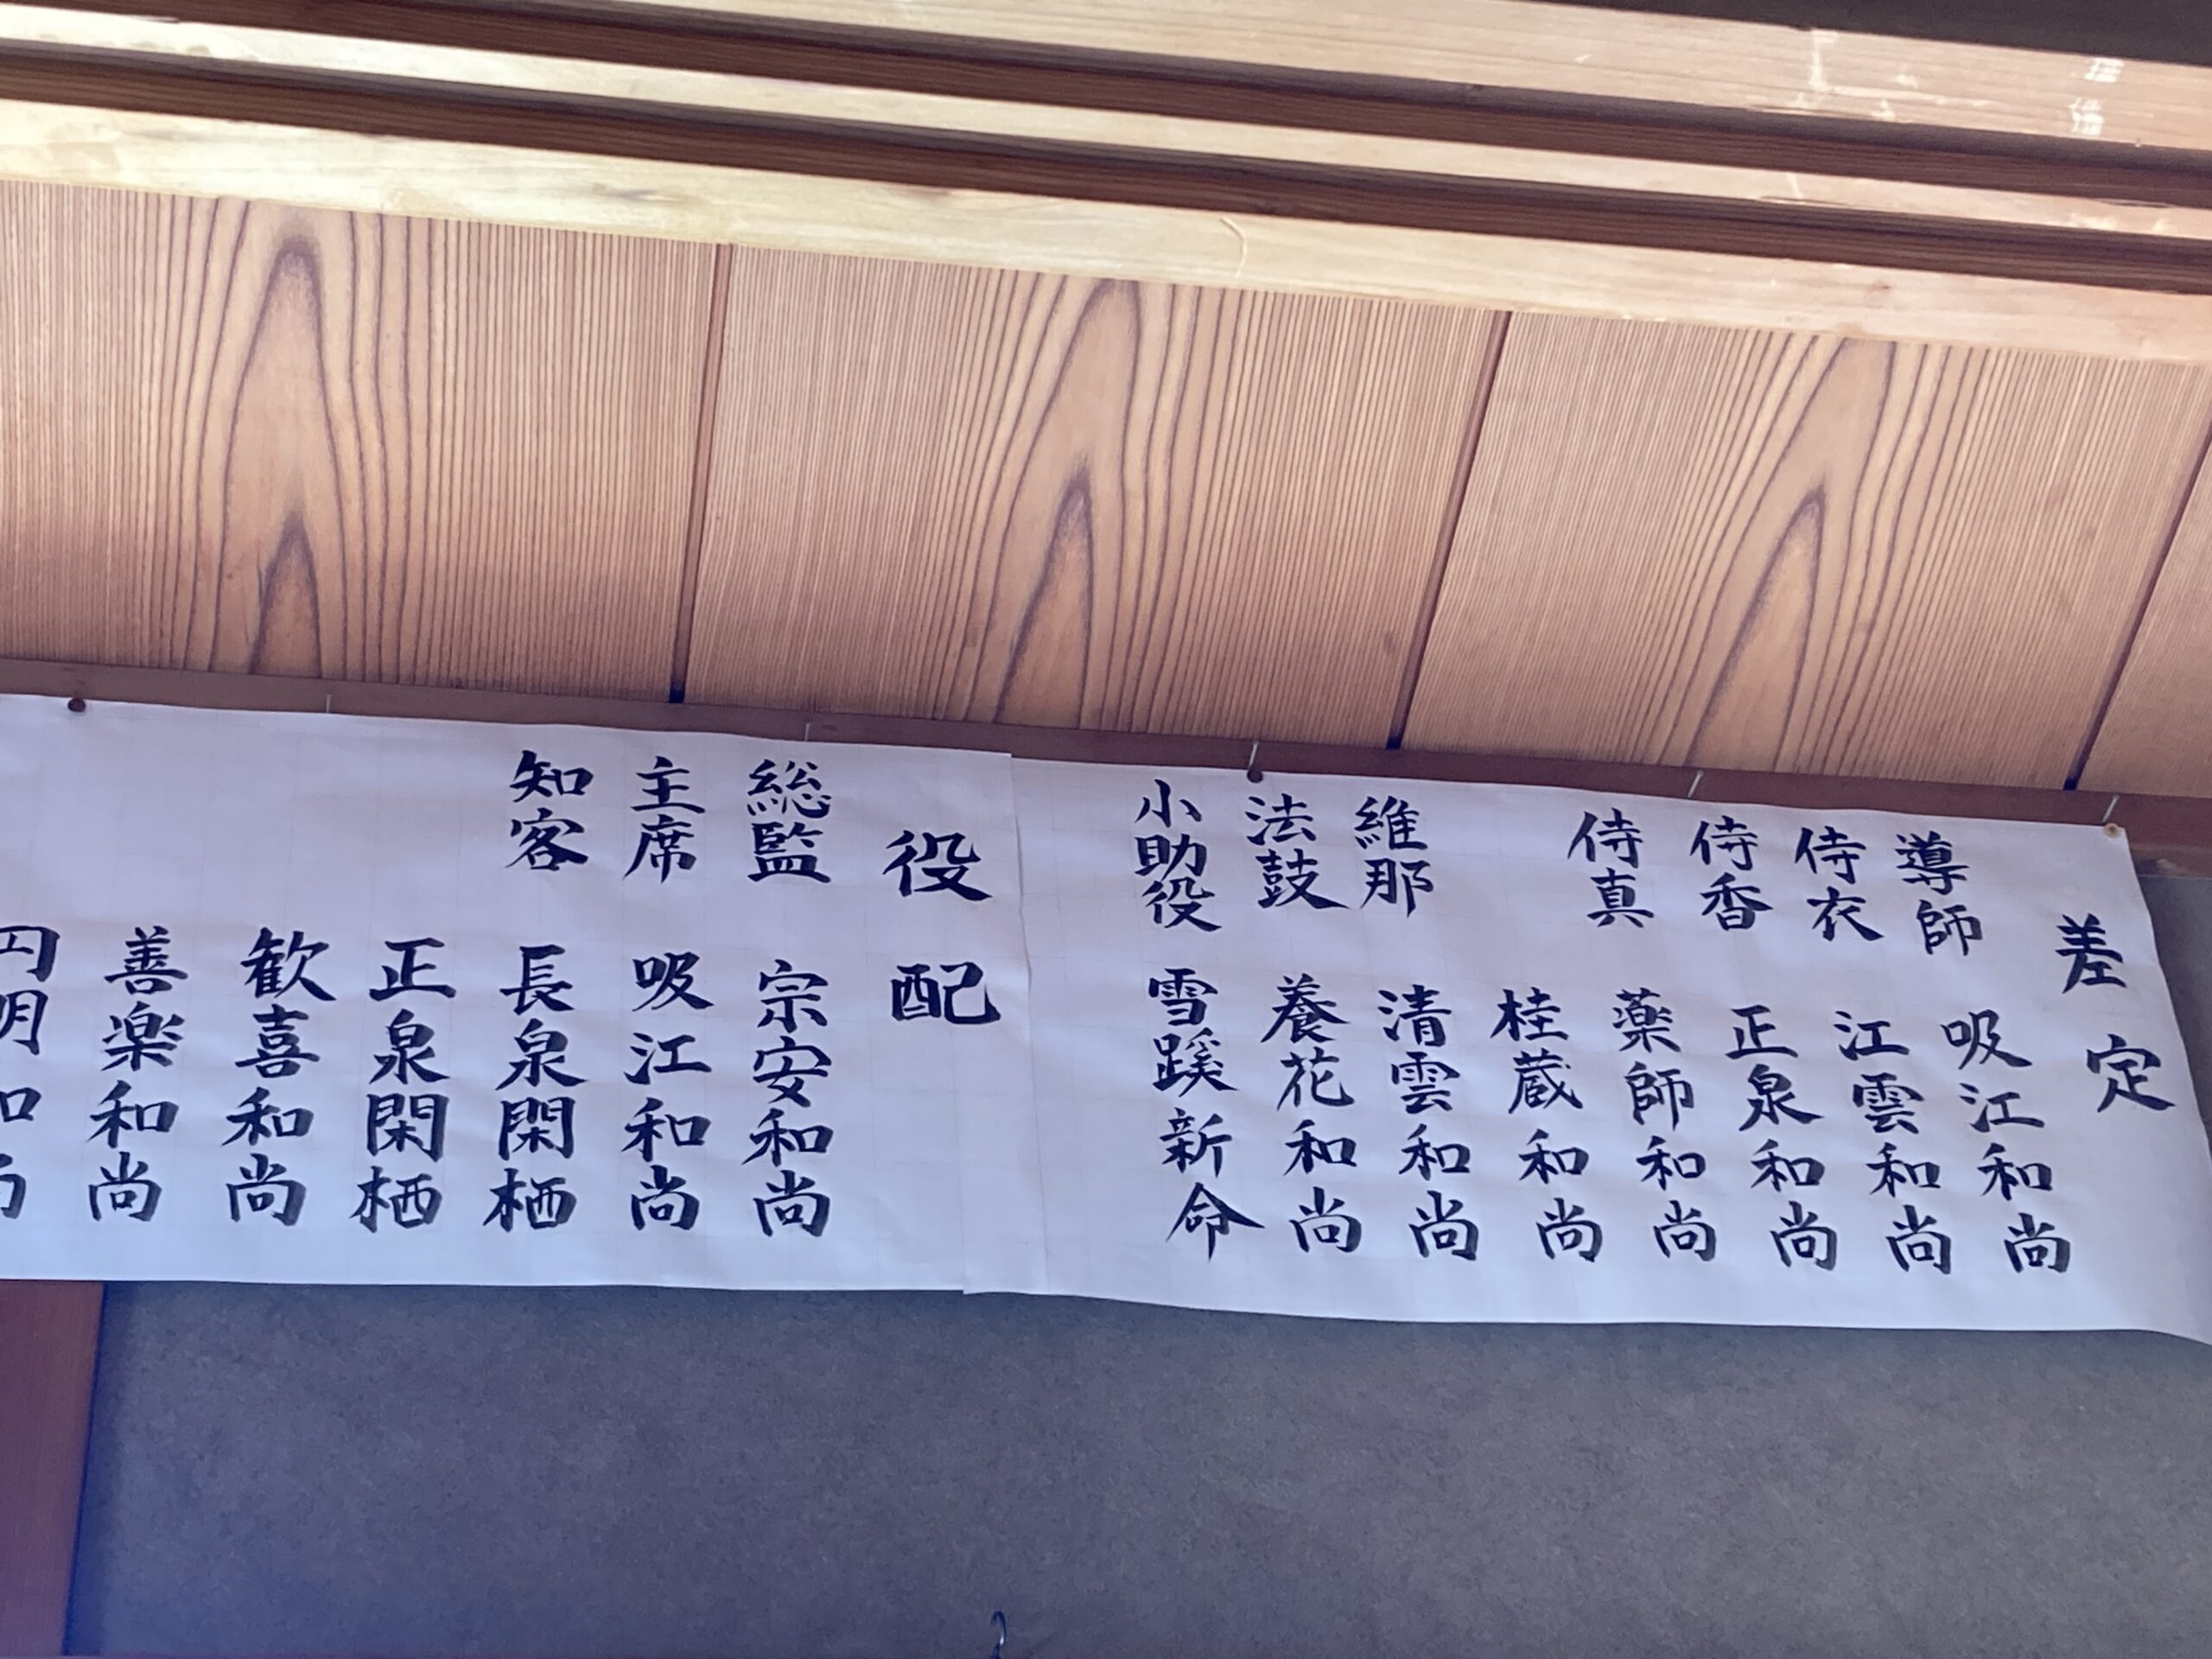 差定
導師 吸江和尚
侍衣 江雲和尚
侍香 正泉和尚
侍真 薬師和尚
桂蔵和尚
維那 清雲和尚
法鼓 養花和尚
小助役 雪蹊新命
役配
総監 宗安和尚
主席 吸江和尚
知客 長泉閑栖
正泉閑栖
歓喜和尚
善楽和尚
円明和尚